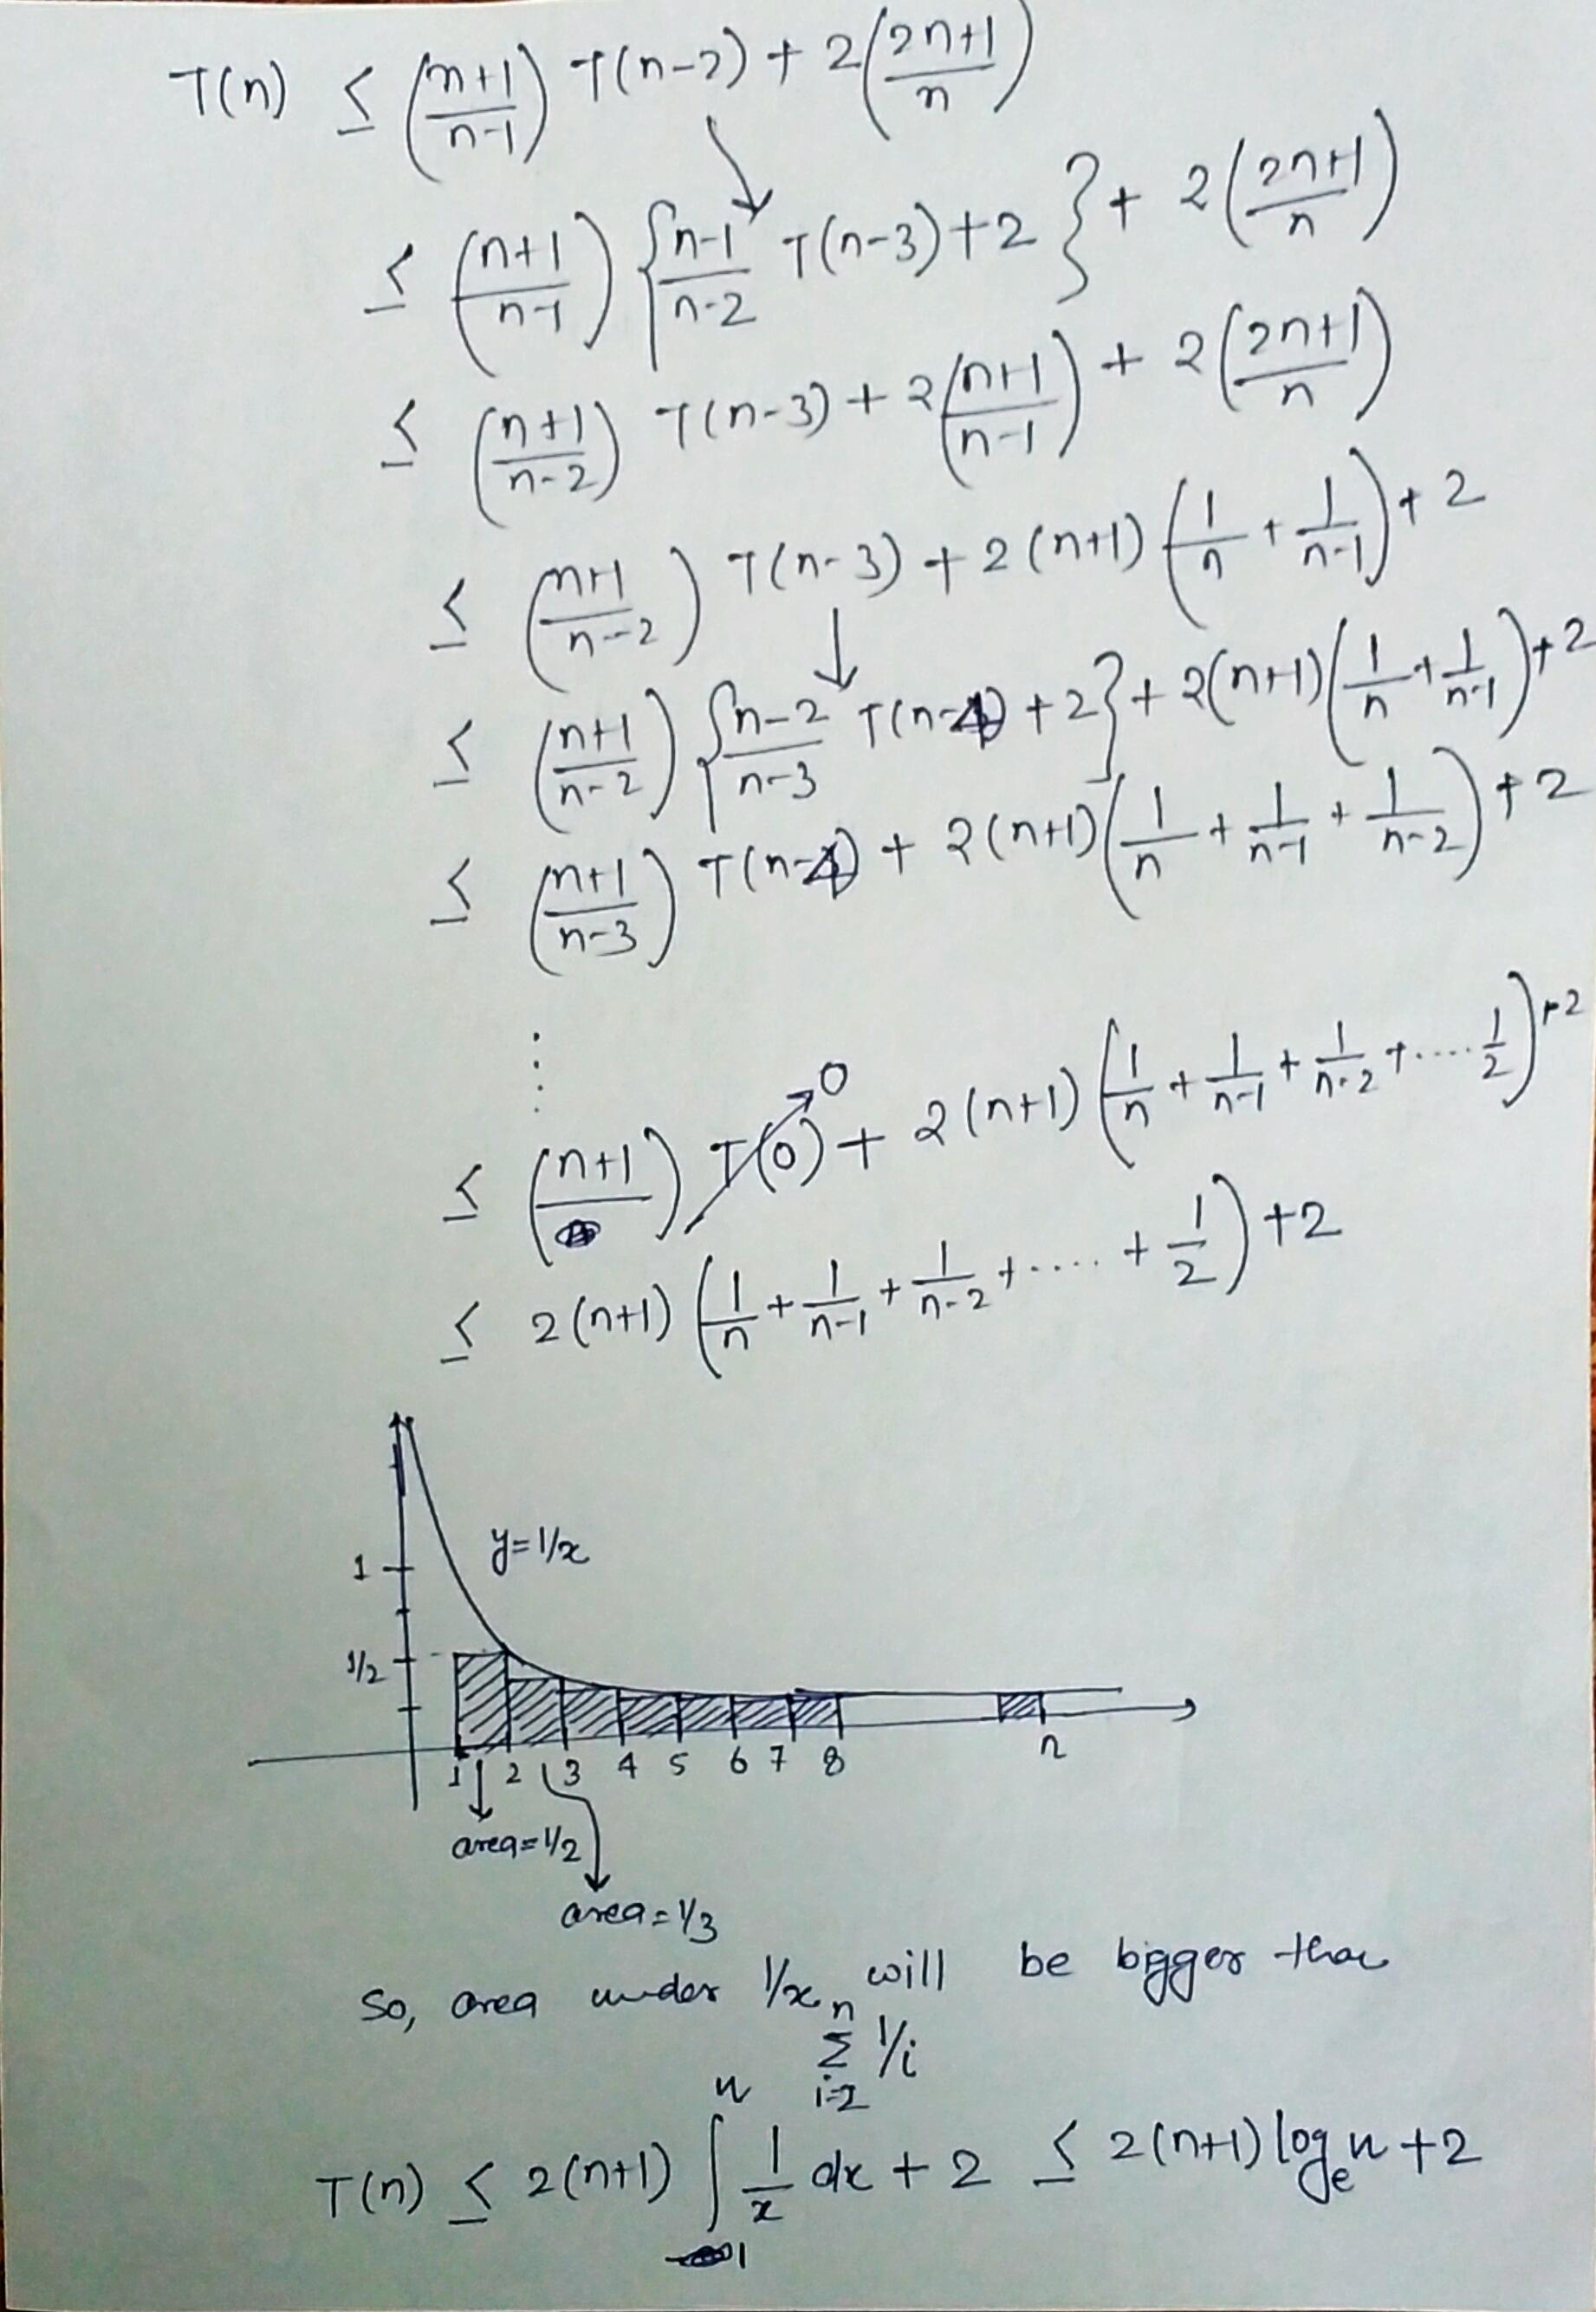 T(n) ≤ ((n+1)/(n-1)) T(n-2) + 2((2n+1)/n)
≤ ((n+1)/(n-1)) { (n-1)/(n-2) T(n-3) + 2 } + 2((2n+1)/n)
≤ ((n+1)/(n-2)) T(n-3) + 2((n+1)/(n-1)) + 2((2n+1)/n)
≤ ((n+1)/(n-2)) T(n-3) + 2(n+1)(1/n + 1/(n-1)) + 2
≤ ((n+1)/(n-2)) { (n-2)/(n-3) T(n-4) + 2 } + 2(n+1)(1/n + 1/(n-1)) + 2
≤ ((n+1)/(n-3)) T(n-4) + 2(n+1)(1/n + 1/(n-1) + 1/(n-2)) + 2
⋮
≤ ((n+1)/ ) T(0) → 0 + 2(n+1)(1/n + 1/(n-1) + 1/(n-2) + .... 1/2) + 2
≤ 2(n+1)(1/n + 1/(n-1) + 1/(n-2) + .... + 1/2) + 2
y=1/x
1
1/2
1 2 3 4 5 6 7 8 n
area=1/2
area=1/3
So, area under 1/x will be bigger than
n Σ i=2 1/i
T(n) ≤ 2(n+1) ∫₁ⁿ 1/x dx + 2 ≤ 2(n+1) logₑn + 2